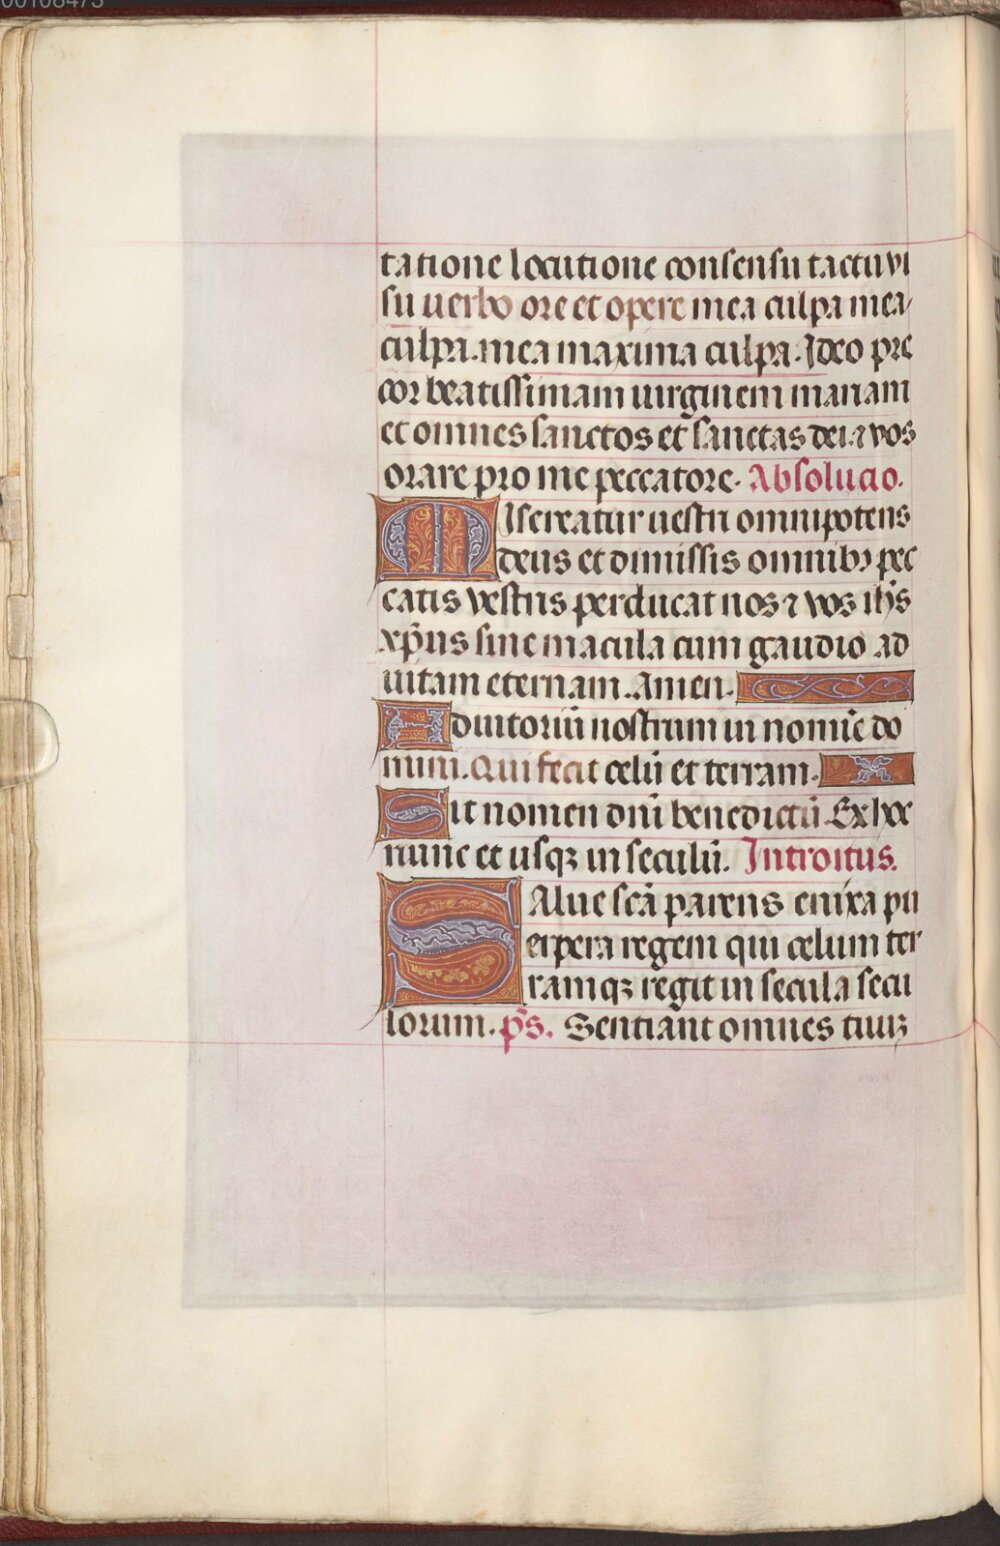 tatione locutione consensu tactu vi
su uerbo ore et opere mea culpa mea
culpa. mea maxima culpa. Ideo pre
cor beatissimam uirginem mariam
et omnes sanctos et sanctas dei ⁊ vos
orare pro me peccatore. Absolucio.
Misereatur uestri omnipotens
deus et dimissis omnibꝫ pec
catis vestris perducat nos ⁊ vos ih̄s
xp̄us sine macula cum gaudio ad
uitam eternam. Amen.
Adiutoriū nostrum in nomīe do
mini. Qui fecit celū et terram.
Sit nomen dnī benedictū. Ex hoc
nunc et usqꝫ in seculū. Introitus.
SAlue scā parens enixa pu
erpera regem qui celum ter
ramqꝫ regit in secula secu
lorum. p̄s. Sentiant omnes tuūꝫ